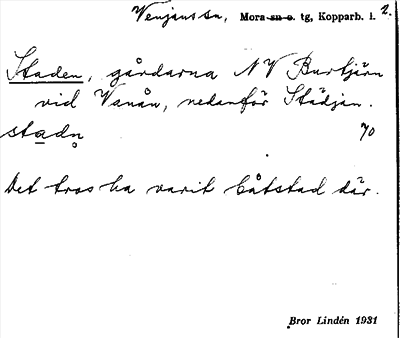 Venjans sn, Mora sn o. tg, Kopparb. l. 2.
Staden, gårdarna NV Burtjärn
vid Vanån, nedanför Städjan.
stadn̥ 70
Det tros ha varit båtstad där.
Bror Lindén 1931